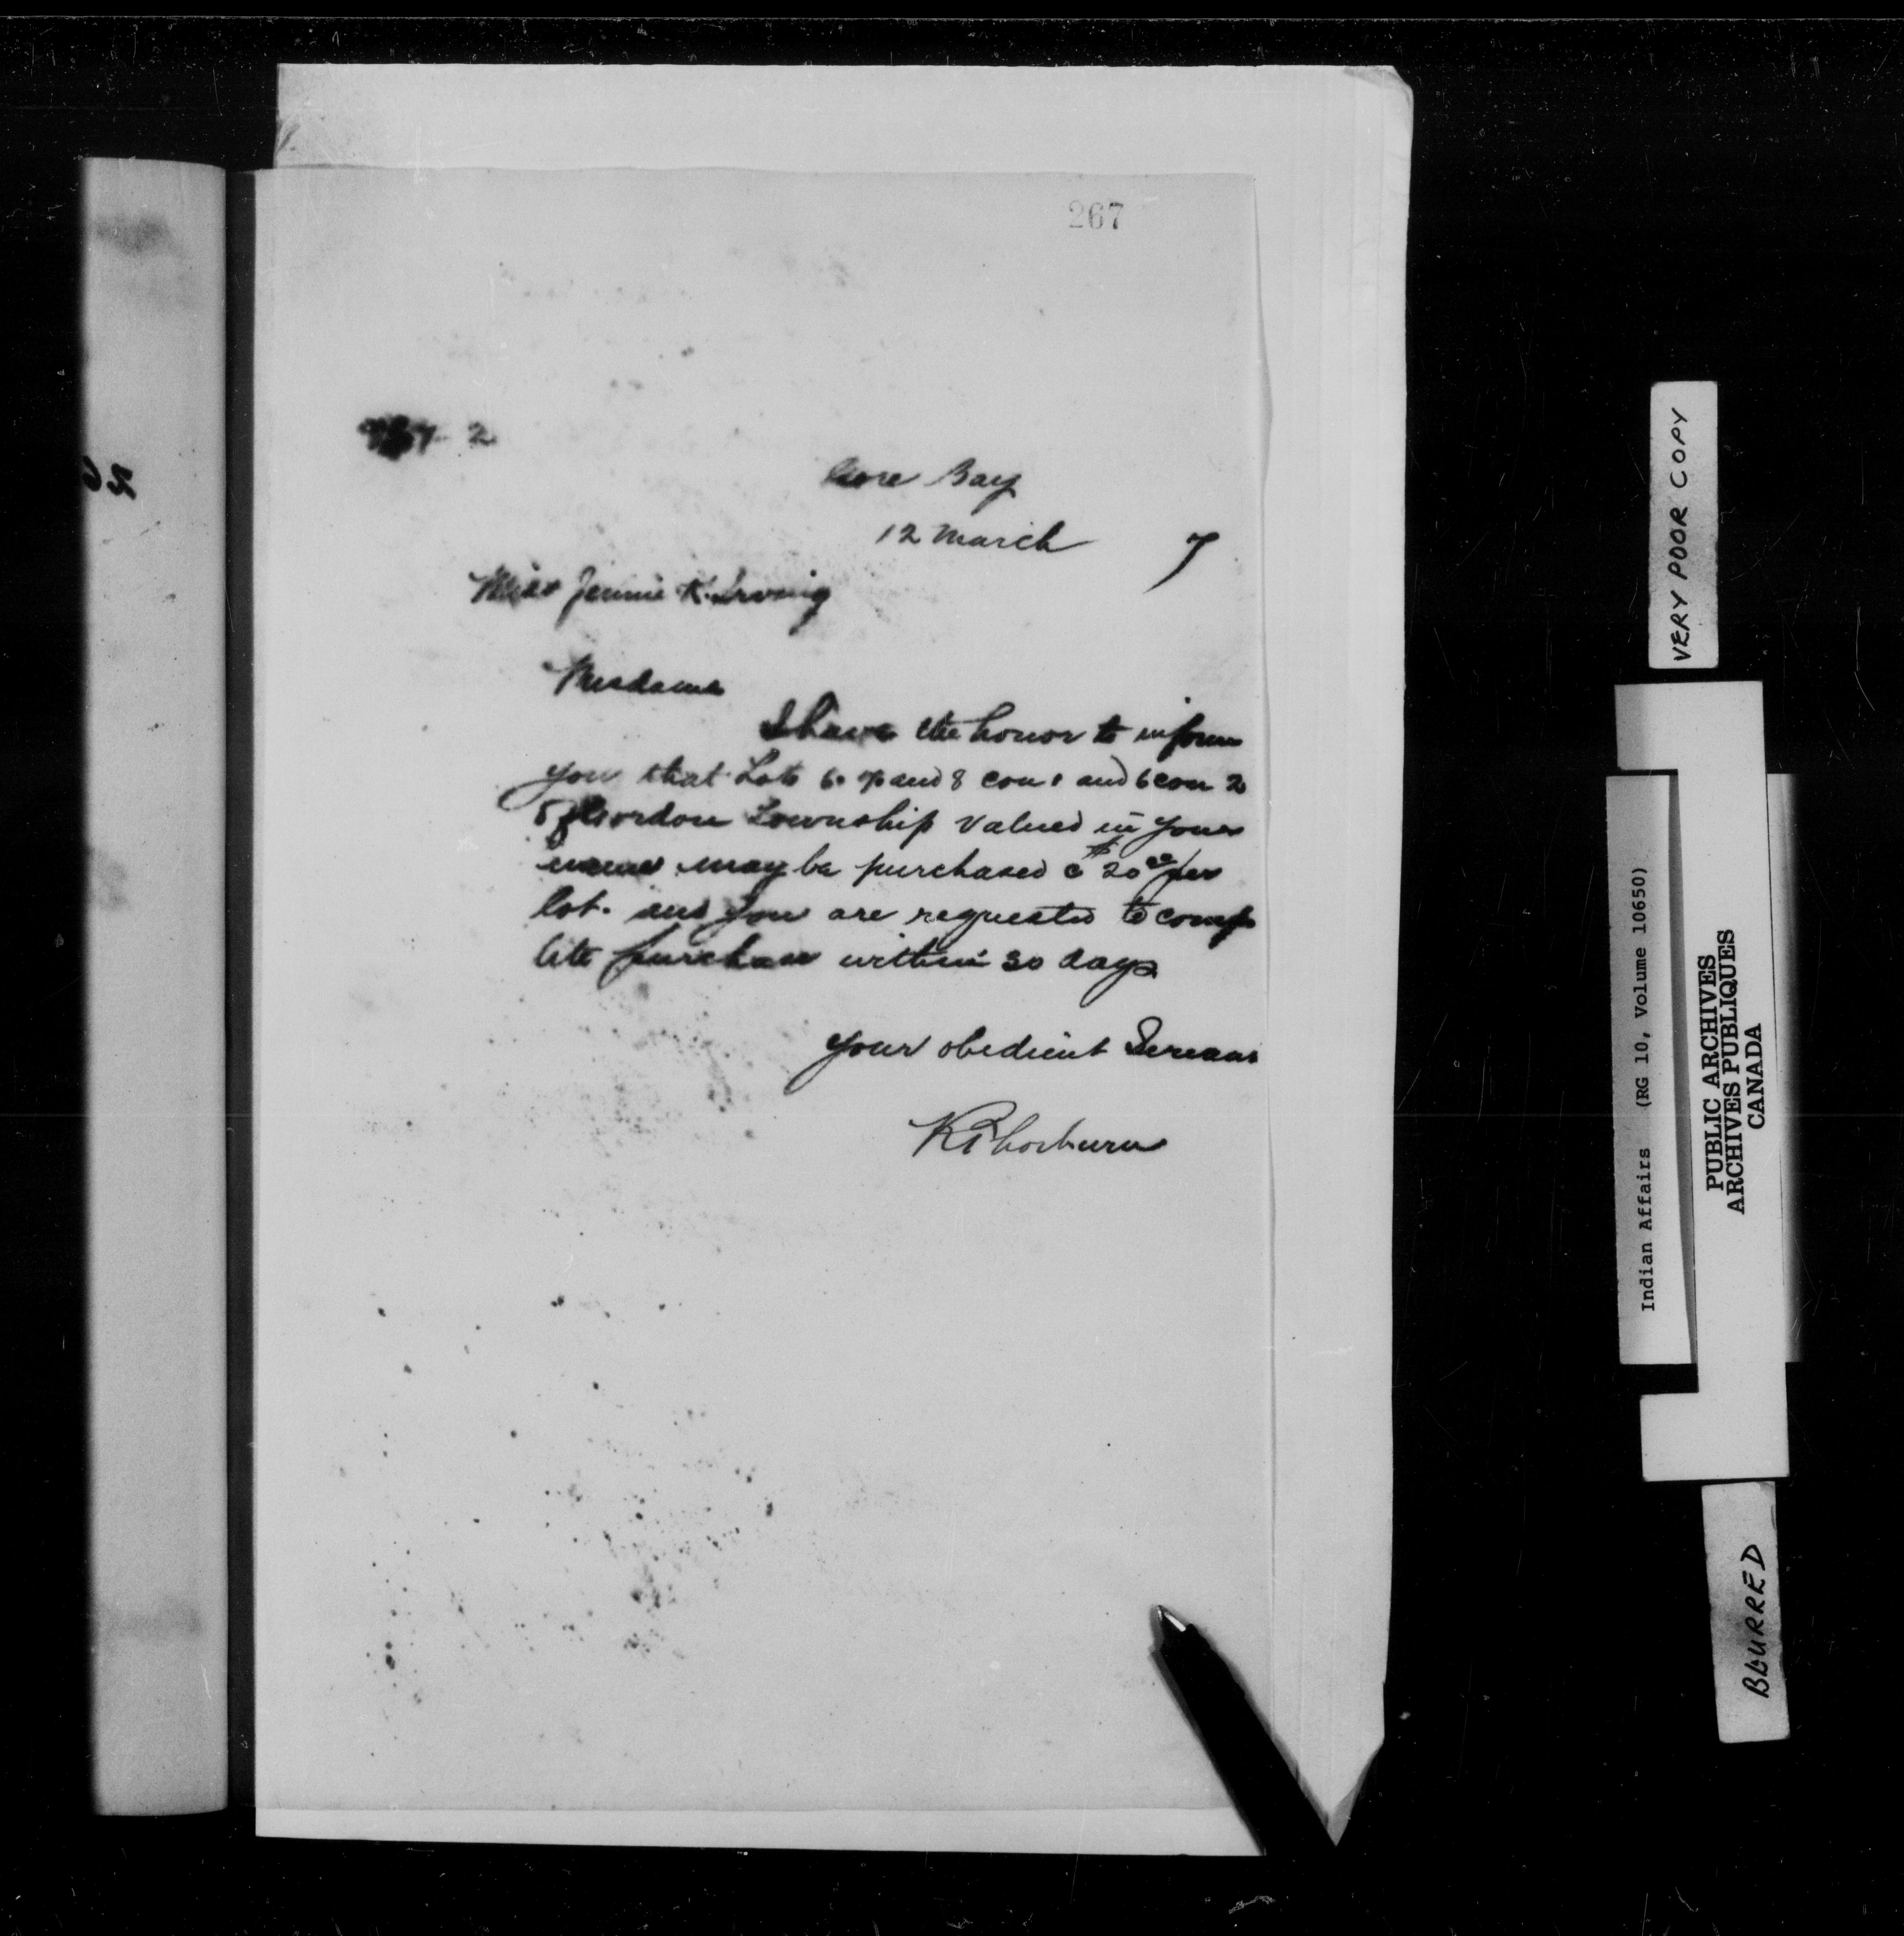 267
267-2
Gore Bay
12 March 7
Miss Jennie K. Irving
Madame
I have the honor to inform
you that Lots 6. 7 and 8 con 1 and 6 con 2
of Gordon Township valued in your
may be purchased @ $20 00/ per
lot. and you are requested to comp
lete purchase within 30 days
your obedient Servant
R Thorburn
VERY POOR COPY
Indian Affairs (RG 10, Volume 10650)
PUBLIC ARCHIVES
ARCHIVES PUBLIQUES
CANADA
BLURRED